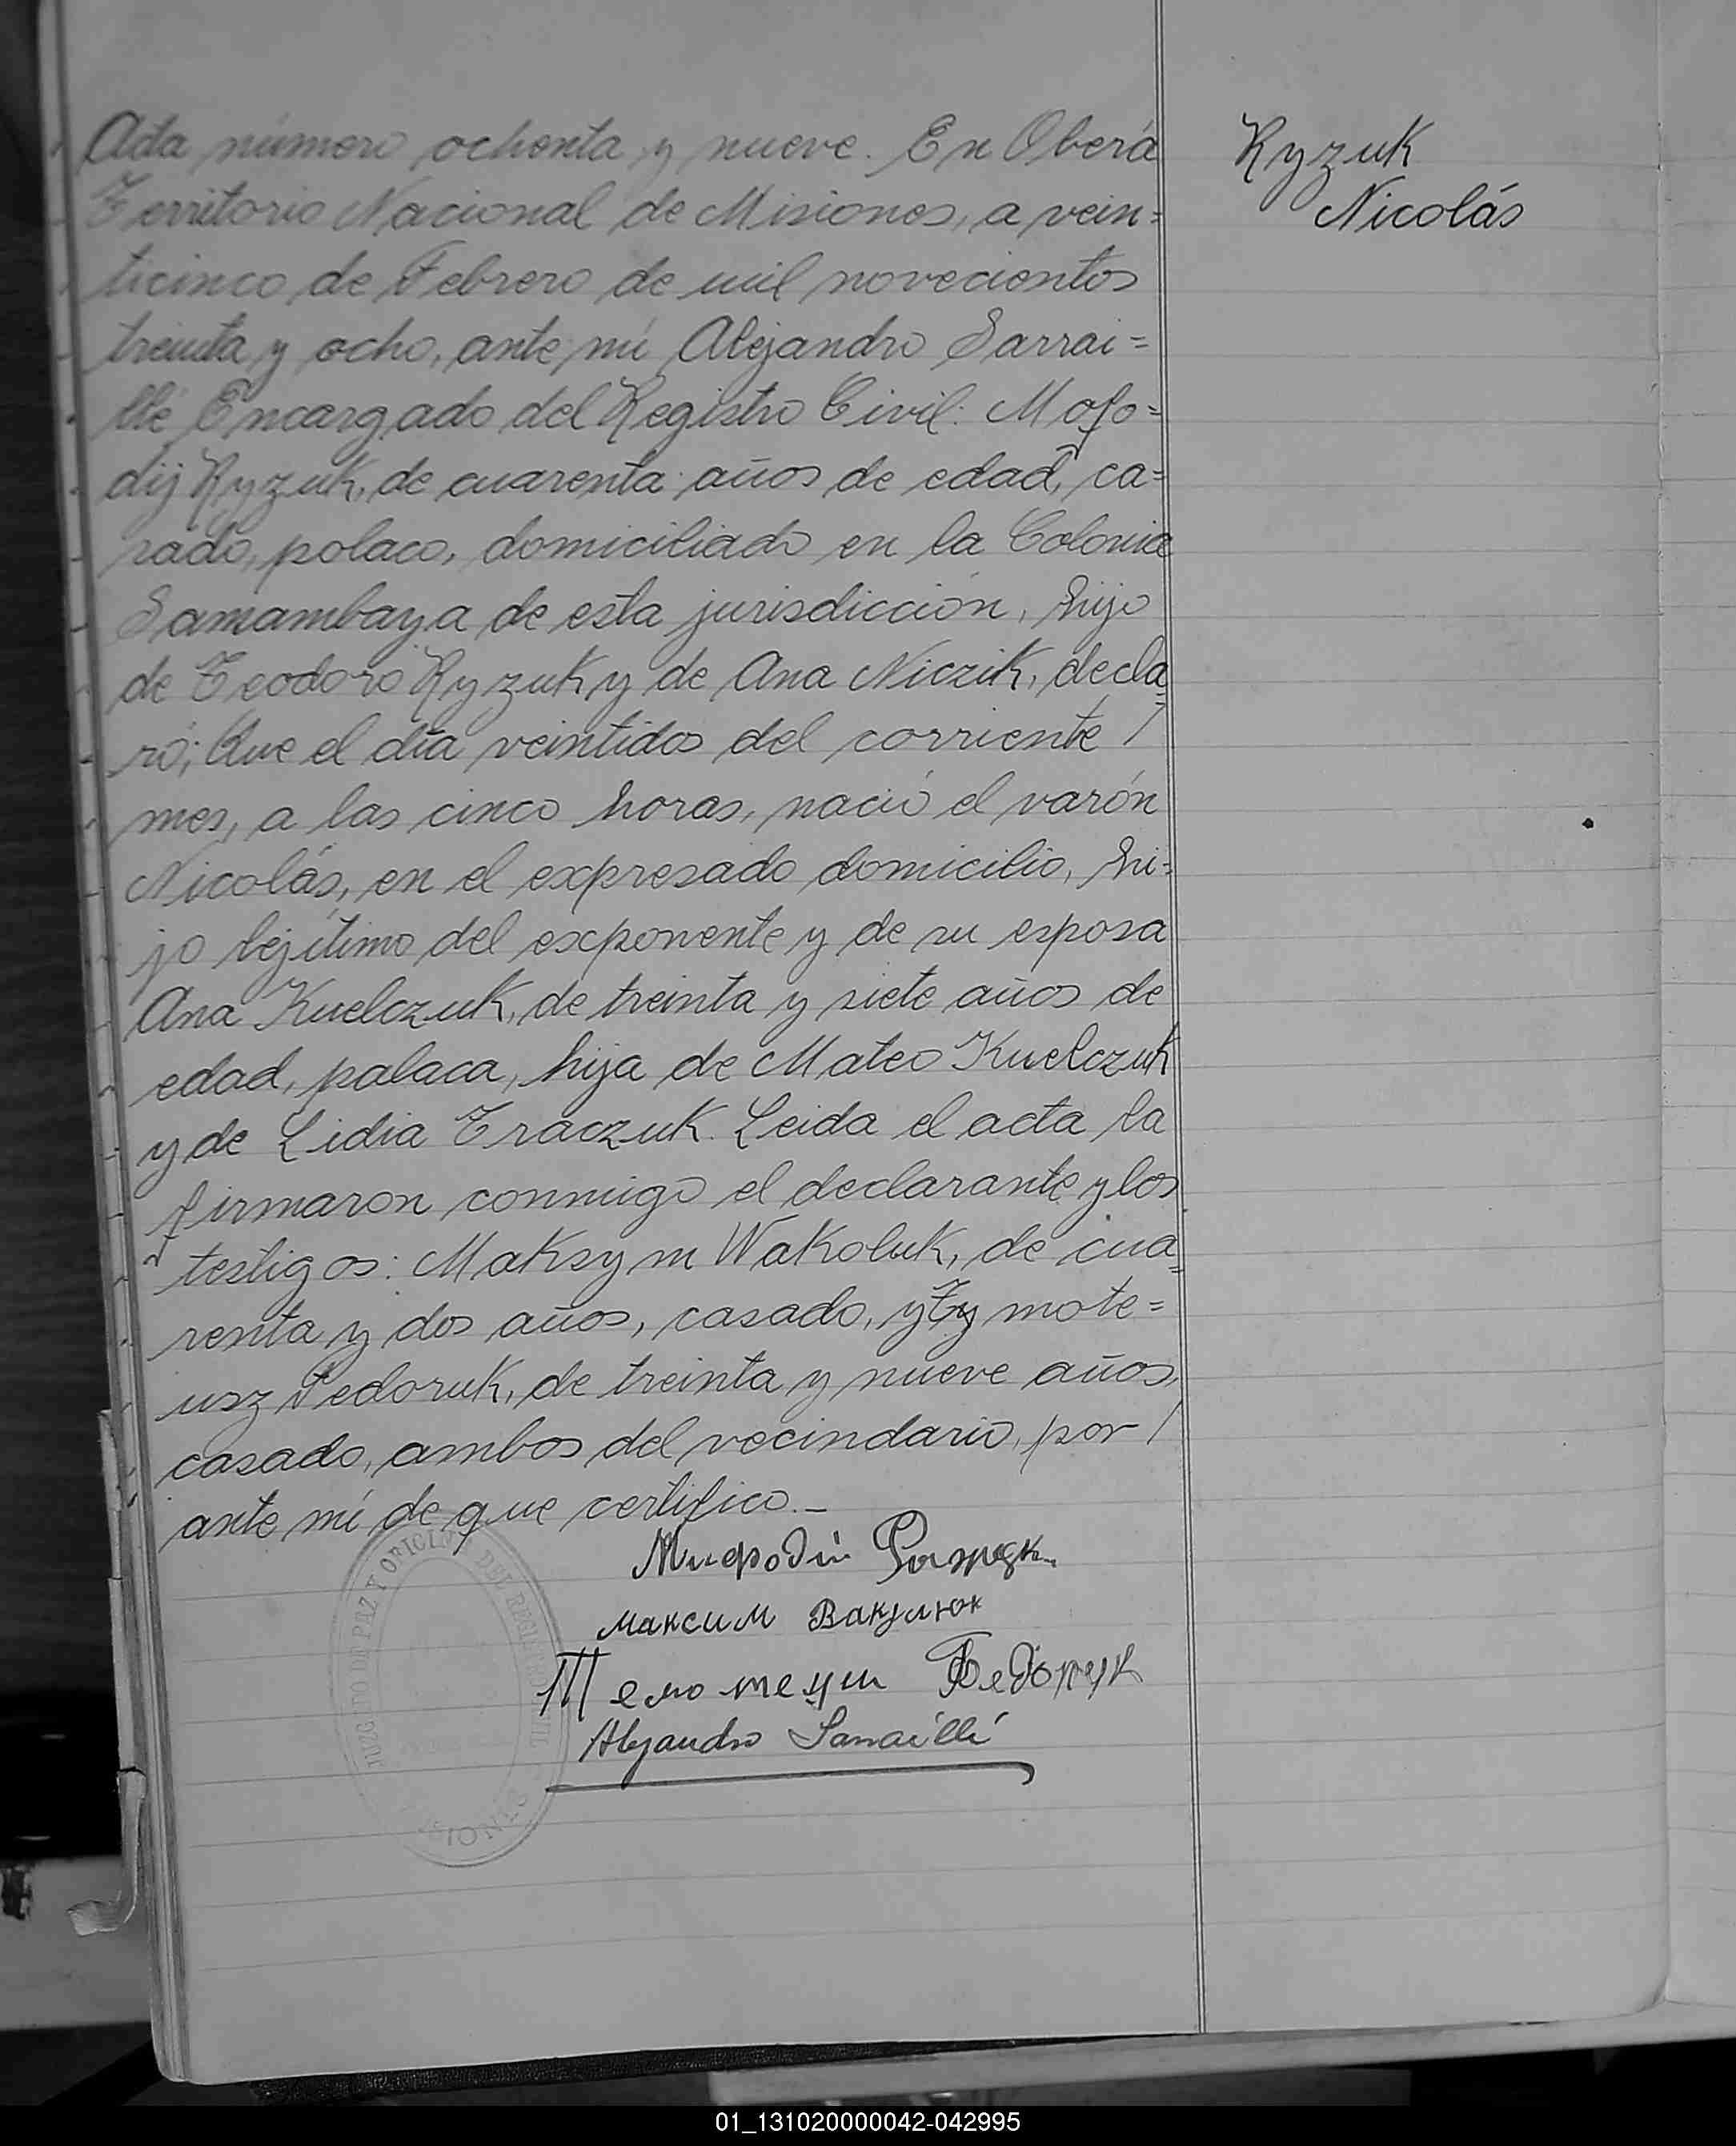 Acta número ochenta y nueve. En Oberá
Territorio Nacional de Misiones, a vein=
ticinco de Febrero de mil novecientos
treinta y ocho, ante mí Alejandro Sarrai=
llé Encargado del Registro Civil: Mofo=
dij Ryzuk, de cuarenta años de edad, ca=
sado, polaco, domiciliado en la Colonia
Samambaya de esta jurisdicción, hijo
de Teodoro Ryzuk y de Ana Niczik, decla=
ró; Que el día veintidos del corriente /
mes, a las cinco horas, nació el varón
Nicolás, en el expresado domicilio, hi=
jo lejítimo del exponente y de su esposa
Ana Kuelczuk, de treinta y siete años de
edad, palaca, hija de Mateo Kuelczuk
y de Lidia Traczuk. Leida el acta la
firmaron conmigo el declarante y los
testigos: Maksym Wakoluk, de cua=
renta y dos años, casado, y Ty mote=
usz Fedoruk, de treinta y nueve años,
casado, ambos del vecindario, por /
ante mí de que certifico.-
Ryzuk
Nicolás
Мифодій
максим Вакулюк
Федорук
Alejandro Sarraillé
JUZGADO DE PAZ Y OFICINA DEL REGISTRO CIVIL
MISIONES
01_131020000042-042995